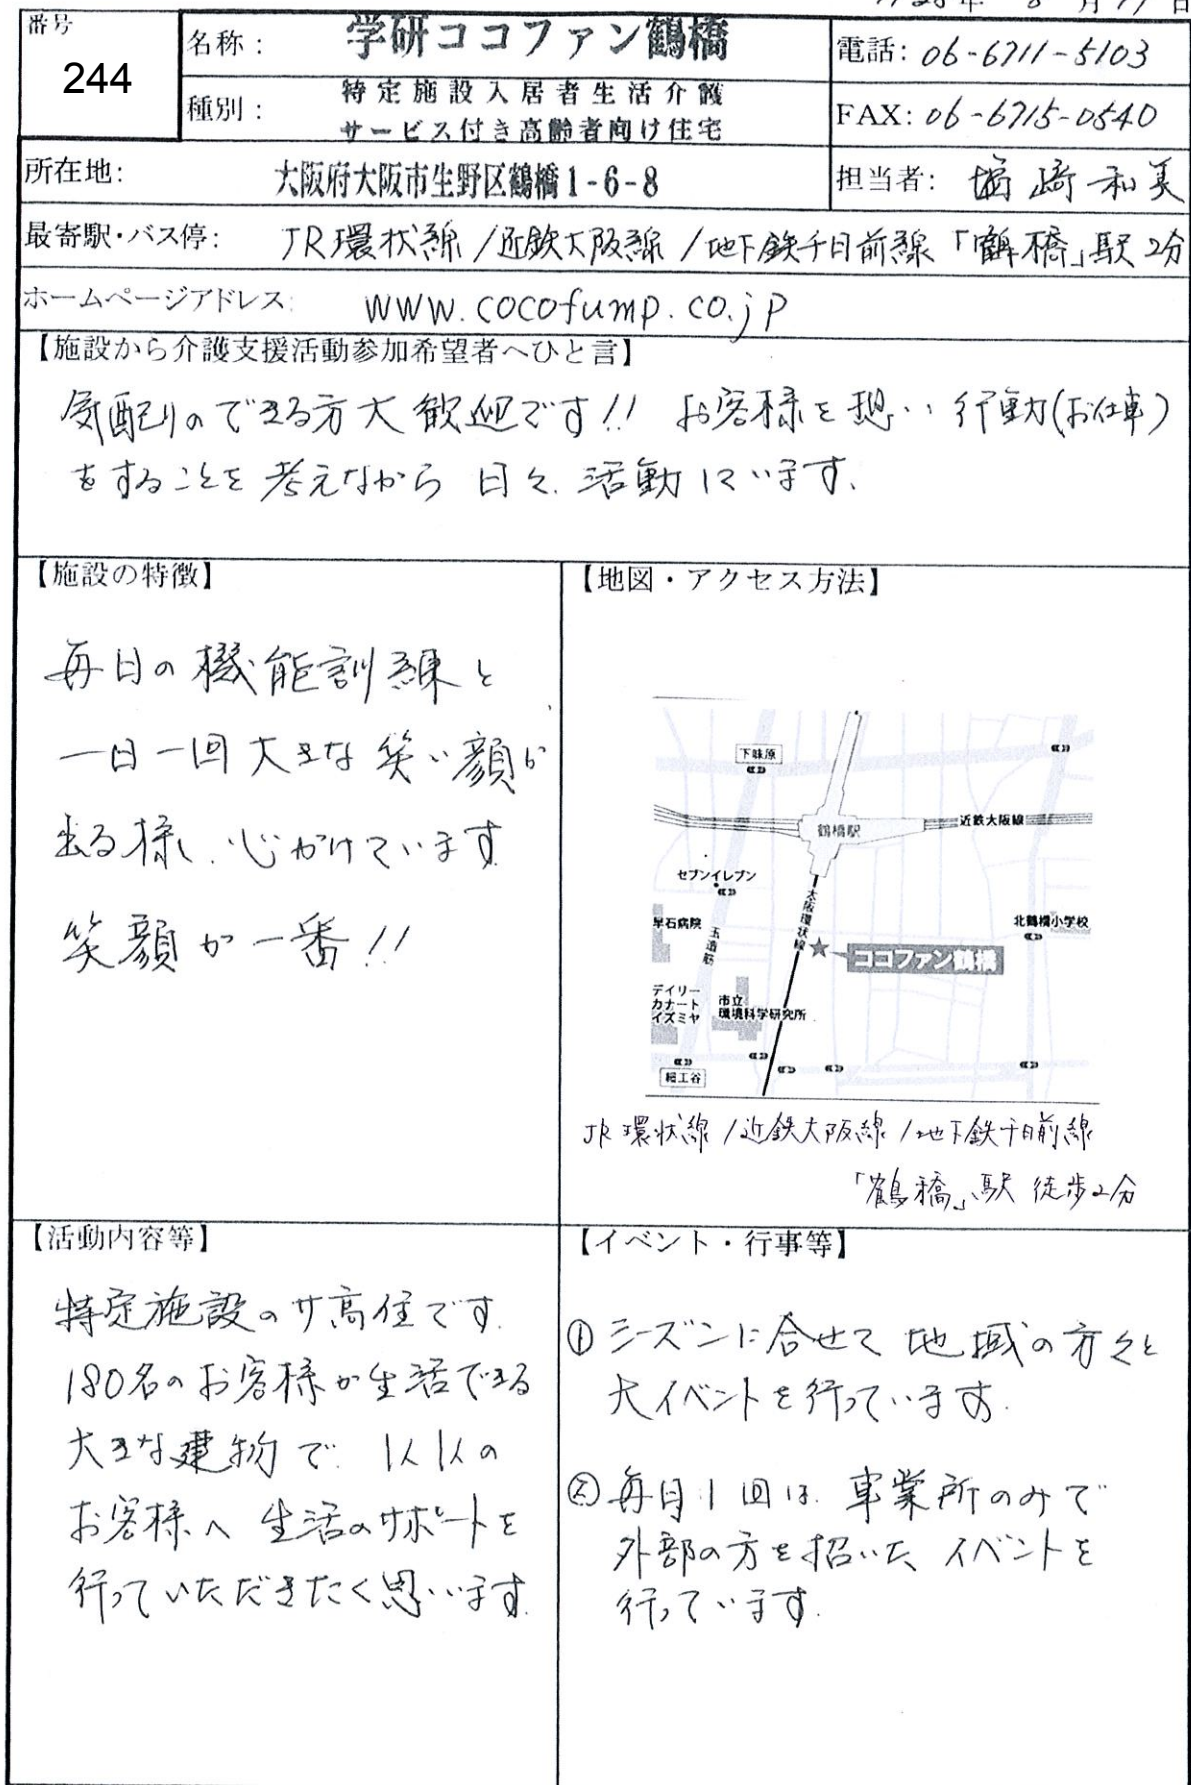 年 8 月 19 日
番号
244
名称：
学研ココファン鶴橋
電話: 06-6711-5103
種別：
特定施設入居者生活介護
サービス付き高齢者向け住宅
FAX: 06-6715-0540
所在地:
大阪府大阪市生野区鶴橋1-6-8
担当者: 崎 和美
最寄駅・バス停: JR環状線/近鉄大阪線/地下鉄千日前線「鶴橋」駅 2分
ホームページアドレス: www.cocofump.co.jp
【施設から介護支援活動参加希望者へひと言】
気配りのできる方大歓迎です!! お客様を想い行動(お仕事)
をすることを考えながら 日々、活動しています。
【施設の特徴】
毎日の機能訓練と
一日一回大きな笑い顔が
出る様に、心がけています
笑顔が一番!!
【地図・アクセス方法】
下味原
鶴橋駅
近鉄大阪線
セブンイレブン
大阪環状線
早石病院
玉造筋
北鶴橋小学校
ココファン鶴橋
デイリー
カナート
イズミヤ
市立
環境科学研究所
細工谷
JR環状線/近鉄大阪線/地下鉄千日前線
「鶴橋」駅 徒歩2分
【活動内容等】
特定施設のサ高住です。
180名のお客様が生活できる
大きな建物で、1人1人の
お客様へ 生活のサポートを
行っていただきたく思います。
【イベント・行事等】
① シーズンに合せて 地域の方々と
大イベントを行っています。
② 毎月1回は、事業所のみで
外部の方を招いた、イベントを
行っています。